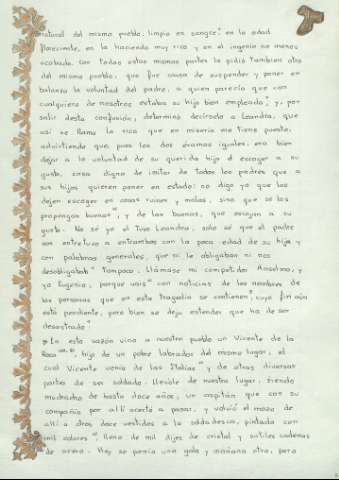 natural del mismo pueblo, limpio en sangre, en la edad
floreciente, en la hacienda muy rico y en el ingenio no menos
acabado. Con todas estas mismas partes la pidió también otro
del mismo pueblo, que fue causa de suspender y poner en
balanza la voluntad del padre, a quien parecía que con
cualquiera de nosotros estaba su hija bien empleada, y, por
salir desta confusión, determinó decírselo a Leandra, que
así se llama la rica que en miseria me tiene puesto,
advirtiendo que, pues los dos éramos iguales, era bien
dejar a la voluntad de su querida hija el escoger a su
gusto, cosa digna de imitar de todos los padres que a
sus hijos quieren poner en estado: no digo yo que los
dejen escoger en cosas ruines y malas, sino que se las
propongan buenas, y de las buenas, que escojan a su
gusto. No sé yo el tuvo Leandra, solo sé que el padre
nos entretuvo a entrambos con la poca edad de su hija y
con palabras generales, que ni le obligaban ni nos
desobligaban tampoco. Llámase mi competidor Anselmo, y
yo Eugenio, porque vais con noticias de los nombres de
las personas que en esta tragedia se contienen, cuyo fin aún
está pendiente, pero bien se deja entender que ha de ser
desastrado
En esta sazón vino a nuestro pueblo un Vicente de la
Roca, hijo de un pobre labrador del mismo lugar, el
cual Vicente venía de las Italias y de otras diversas
partes de ser soldado. Llevóle de nuestro lugar, siendo
muchacho de hasta doce años, un capitán que con su
compañía por allí acertó a pasar, y volvió el mozo de
allí a otros doce vestido a la soldadesca, pintado con
mil colores, lleno de mil dijes de cristal y sutiles cadenas
de acero. Hoy se ponía una gala y mañana otra, pero